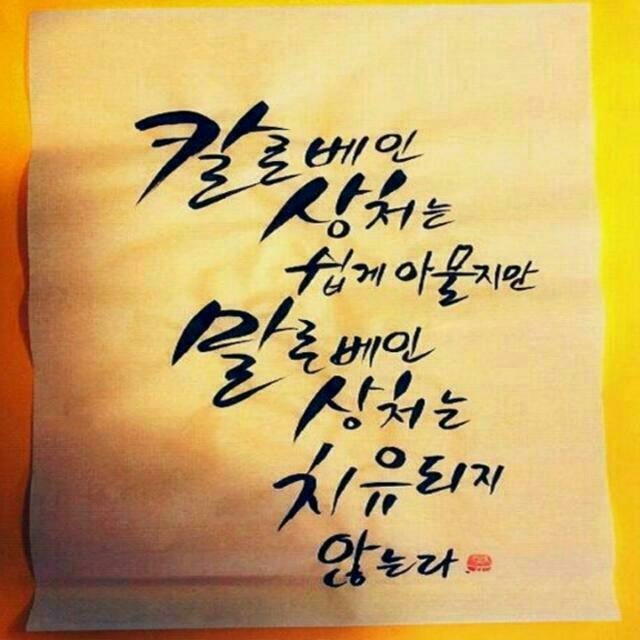 칼로 베인
상처는
쉽게 아물지만
말로 베인
상처는
치유되지
않는라